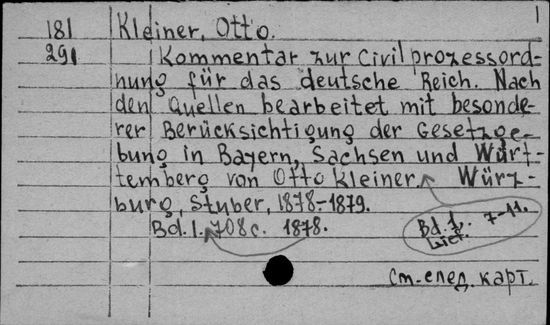 1
181 Kleiner, Otto.
291 Kommentar zur Civilprozessord-
nung für das deutsche Reich. Nach
den Quellen bearbeitet mit besonde-
rer Berücksichtigung der Gesetzge-
bung in Bayern, Sachsen und Würt-
temberg von Otto Kleiner. Würz-
burg, Stuber, 1878-1879.
Bd. 1. 708c. 1878.
Bd. 1. 7-11.
Lief.
См. след. карт.